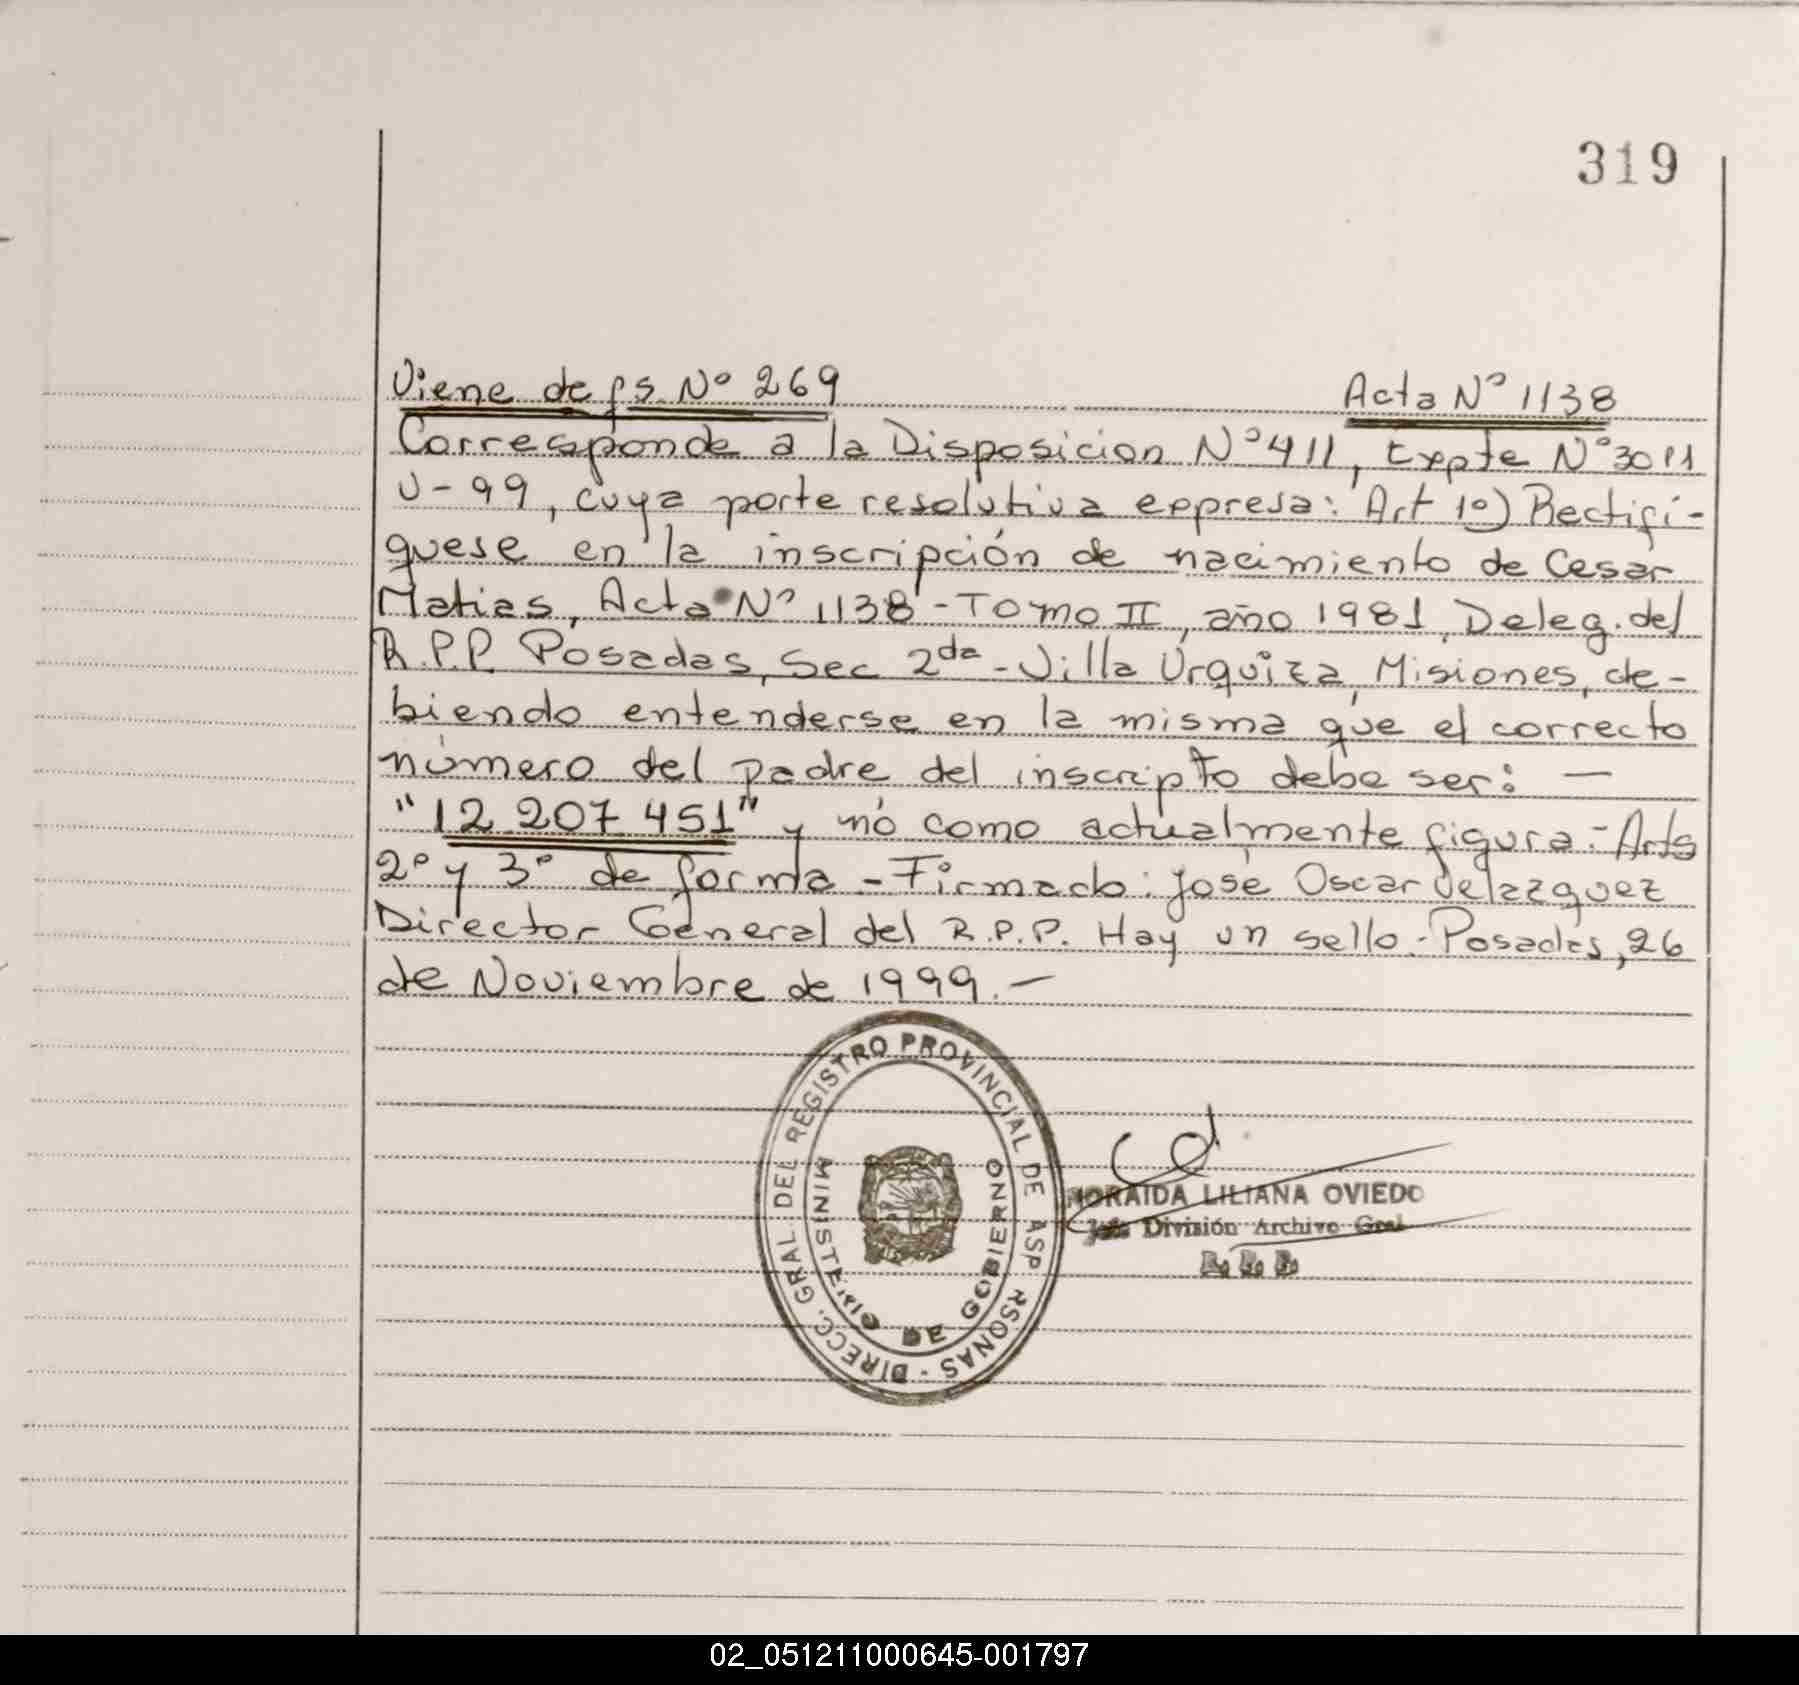 319
Viene de fs. Nº 269 Acta Nº 1138
Corresponde a la Disposicion Nº 411, Expte Nº 3011
U-99, cuya parte resolutiva expresa: Art 1º) Rectifi-
quese en la inscripción de nacimiento de Cesar
Matias, Acta Nº 1138 - Tomo II, año 1981, Deleg. del
R.P.P. Posadas, Sec 2da - Villa Urquiza, Misiones, de-
biendo entenderse en la misma que el correcto
número del padre del inscripto debe ser: —
"12 207 451" y nó como actualmente figura.- Arts
2º y 3º de forma - Firmado: José Oscar Velazquez
Director General del R.P.P. Hay un sello.- Posadas, 26
de Noviembre de 1999.-
DIRECC. GRAL. DEL REGISTRO PROVINCIAL DE RSONAS -
MINISTERIO DE GOBIERNO
NORAIDA LILIANA OVIEDO
Jefe División Archivo Gral
02_051211000645-001797